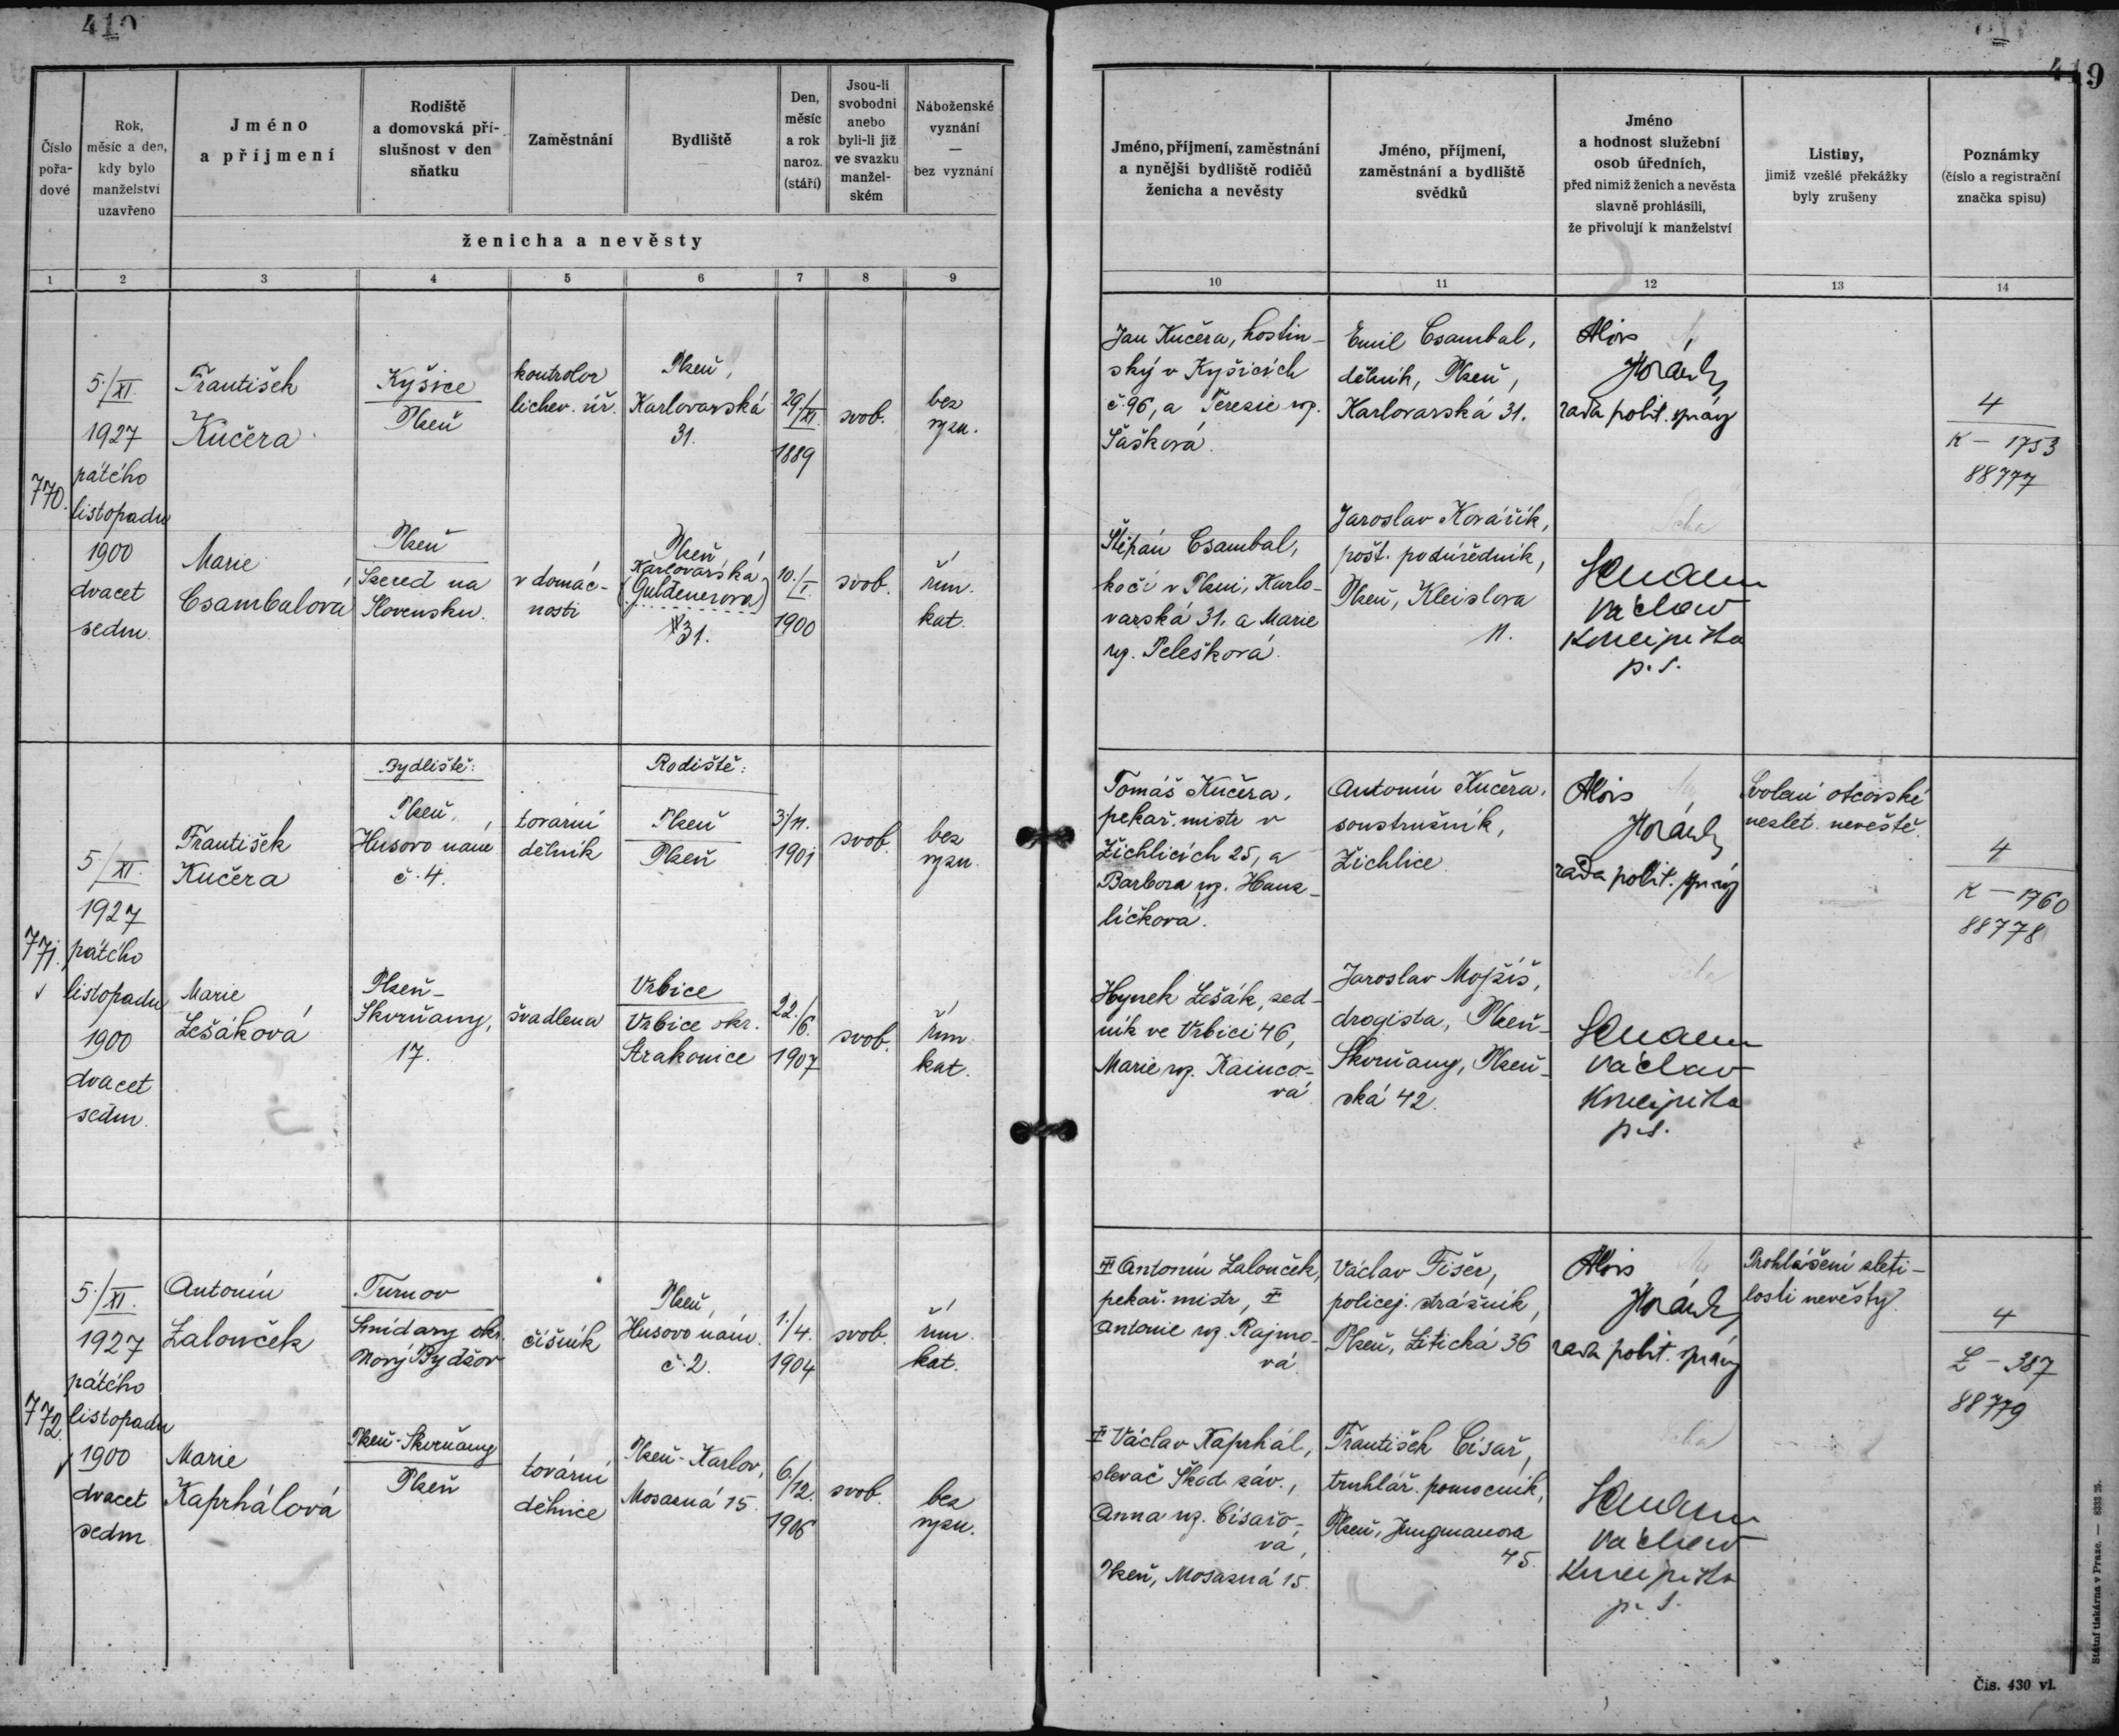 419
419
Číslo pořadové
Rok, měsíc a den, kdy bylo manželství uzavřeno
Jméno a příjmení
Rodiště a domovská příslušnost v den sňatku
Zaměstnání
Bydliště
Den, měsíc a rok naroz. (stáří)
Jsou-li svobodni anebo byli-li již ve svazku manželském
Náboženské vyznání — bez vyznání
ženicha a nevěsty
1 2 3 4 5 6 7 8 9
Jméno, příjmení, zaměstnání a nynější bydliště rodičů ženicha a nevěsty
Jméno, příjmení, zaměstnání a bydliště svědků
Jméno a hodnost služební osob úředních, před nimiž ženich a nevěsta slavně prohlásili, že přivolují k manželství
Listiny, jimiž vzešlé překážky byly zrušeny
Poznámky (číslo a registrační značka spisu)
10 11 12 13 14
770.
5./XI.
1927
pátého
listopadu
1900
dvacet
sedm
František
Kučera
Kyšice
Plzeň
kontrolor
lichev. úř.
Plzeň,
Karlovarská
31.
29./XI.
1889
svob.
bez
vyzn.
Jan Kučera, hostin-
ský v Kyšicích
č. 96, a Terezie roz.
Šašková.
Emil Csambal,
dělník, Plzeň,
Karlovarská 31.
Alois
Horák
rada polit. správy
4
K – 1753
88777
Marie
Csambalová
Plzeň
Szered na
Slovensku.
v domác-
nosti
Plzeň
Karlovarská
(Guldenerova)
31.
10./I.
1900
svob.
řím.
kat.
Štěpán Csambal,
kočí v Plzni, Karlo-
varská 31. a Marie
roz. Pelešková.
Jaroslav Kovářík,
pošt. podúředník,
Plzeň, Kleislova
11.
Václav
koncipista
p. s.
771.
5./XI.
1927
pátého
listopadu
1900
dvacet
sedm.
František
Kučera
Bydliště:
Plzeň,
Husovo nám
č. 4.
tovární
dělník
Rodiště:
Plzeň
Plzeň
3/11.
1901
svob.
bez
vyzn.
Tomáš Kučera,
pekař. mistr v
Žichlicích 25, a
Barbora roz. Hanz-
líčkova.
Antonín Kučera,
soustružník,
Žichlice
Alois
Horák
rada polit. správy
Svolení otcovské
nezlet. nevěstě.
4
K – 1760
88778
Marie
Lešáková
Plzeň-
Skvrňany,
17.
švadlena
Vrbice
Vrbice okr.
Strakonice
22./6.
1907
svob.
řím.
kat.
Hynek Lešák, zed-
ník ve Vrbici 46,
Marie roz. Kainco-
vá
Jaroslav Mojžíš,
drogista, Plzeň-
Skvrňany, Plzeň-
ská 42.
Václav
koncipista
p. s.
772.
5./XI.
1927
pátého
listopadu
1900
dvacet
sedm
Antonín
Žalouček
Turnov
Smidary okr.
Nový Bydžov
číšník
Plzeň,
Husovo nám.
č. 2.
1./4.
1904
svob.
řím.
kat.
Antonín Žalouček,
pekař. mistr,
Antonie roz. Rajmo-
vá
Václav Fišer,
policej. strážník,
Plzeň, Litická 36
Alois
Horák
rada polit. správy
Prohlášení zleti-
losti nevěsty.
4
Ž – 387
88779
Marie
Kaprhálová
Plzeň-Skvrňany
Plzeň
tovární
dělnice
Plzeň-Karlov,
Mosazná 15.
6./12.
1906
svob.
bez
vyzn.
Václav Kaprhál,
slevač Škod. záv.,
Anna roz. Císařo-
vá,
Plzeň, Mosazná 15.
František Císař,
truhlář. pomocník,
Plzeň, Jungmanova
45.
Václav
koncipista
p. s.
Státní tiskárna v Praze. — 8333 26.
Čís. 430 vl.